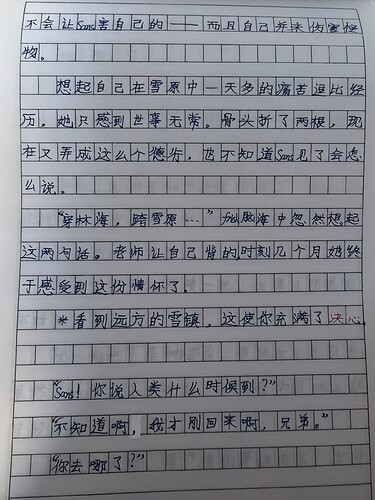 不会让Sans害自己的——而且自己并未伤害怪
物。
想起自己在雪原中一天多的痛苦逗比经
历，她只感到世事无常。骨头折了两根，现
在又弄成这么个德行，也不知道Sans见了会怎
么说。
“穿林海，跨雪原…”她脑海中忽然想起
这两句话。老师让自己背的，时刻几个月她终
于感受到这份情怀了。
*看到远方的雪镇，这使你充满了决心。
“Sans！你说人类什么时候到？”
“不知道啊，我才刚回来啊，兄弟。”
“你去哪了？”